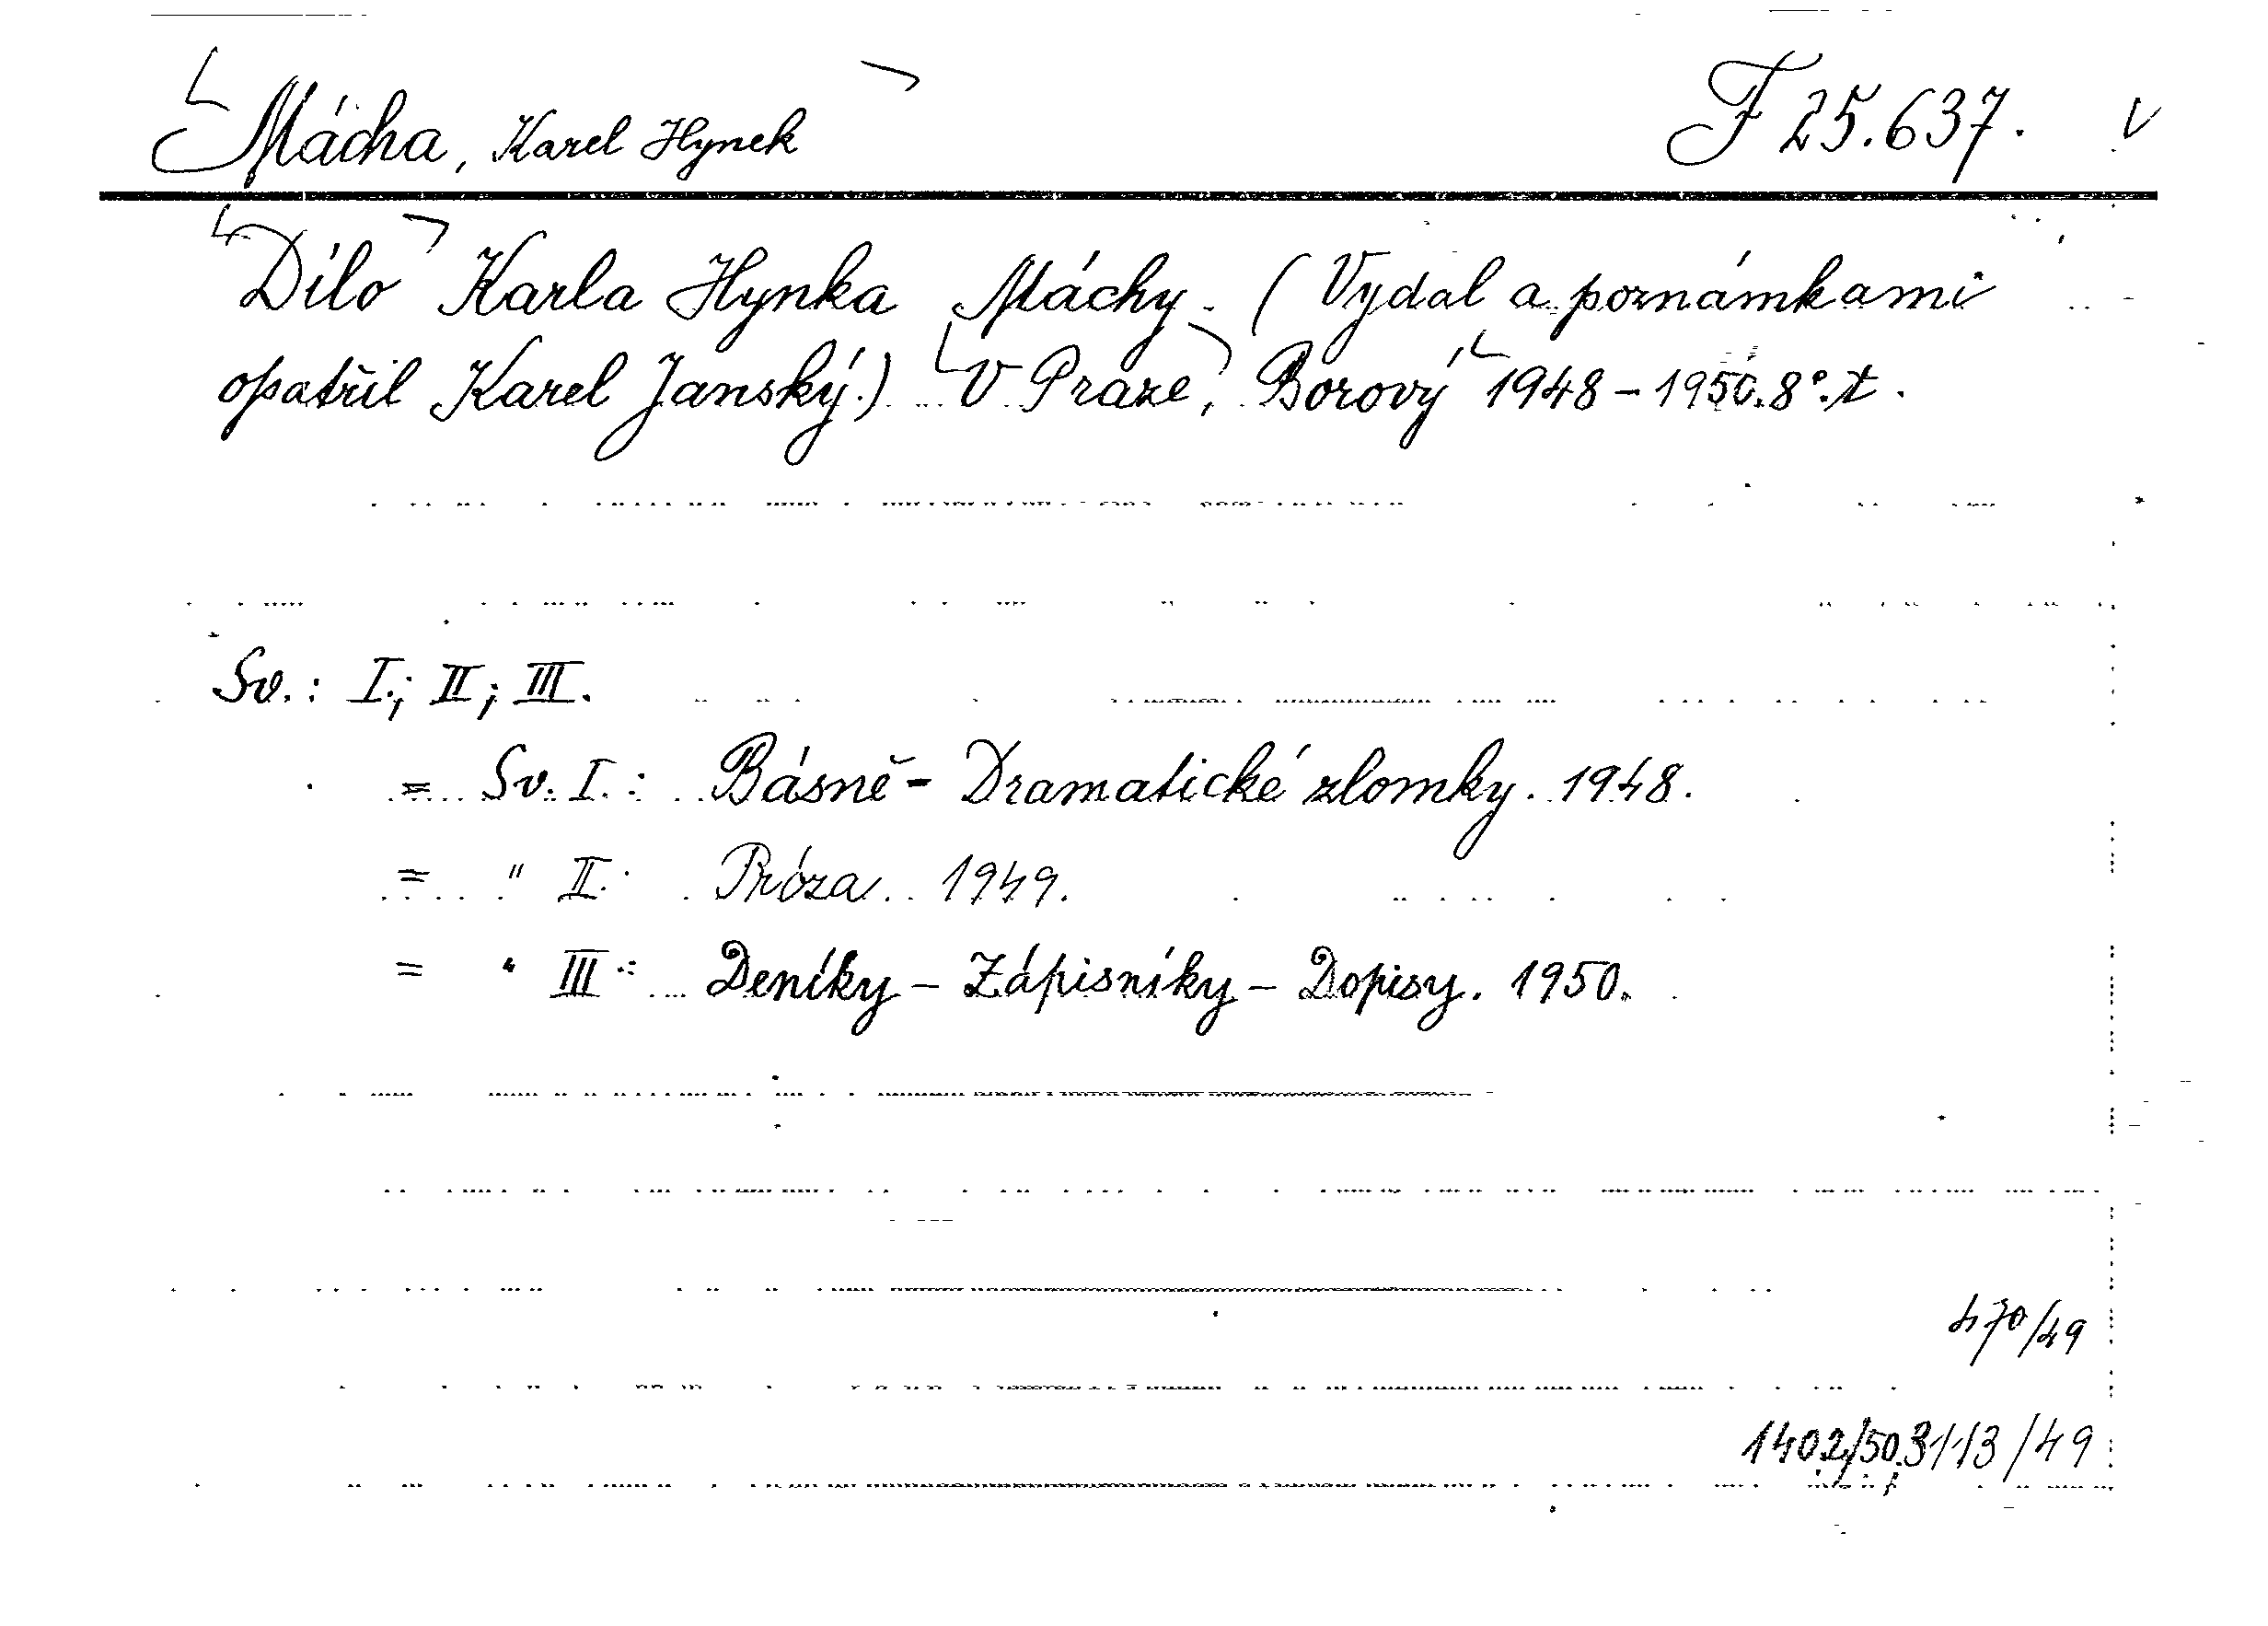 Mácha, Karel Hynek F 25.637. V
Dílo Karla Hynka Máchy. (Vydal a poznámkami
opatřil Karel Janský.) V Praze, Borový 1948-1950. 8°. t.
Sv.: I.; II; III.
= Sv. I.: Básně - Dramatické zlomky. 1948.
= " II.: Próza. 1949.
= " III.: Deníky - Zápisníky - Dopisy. 1950.
470/49
1402/50. 3113/49